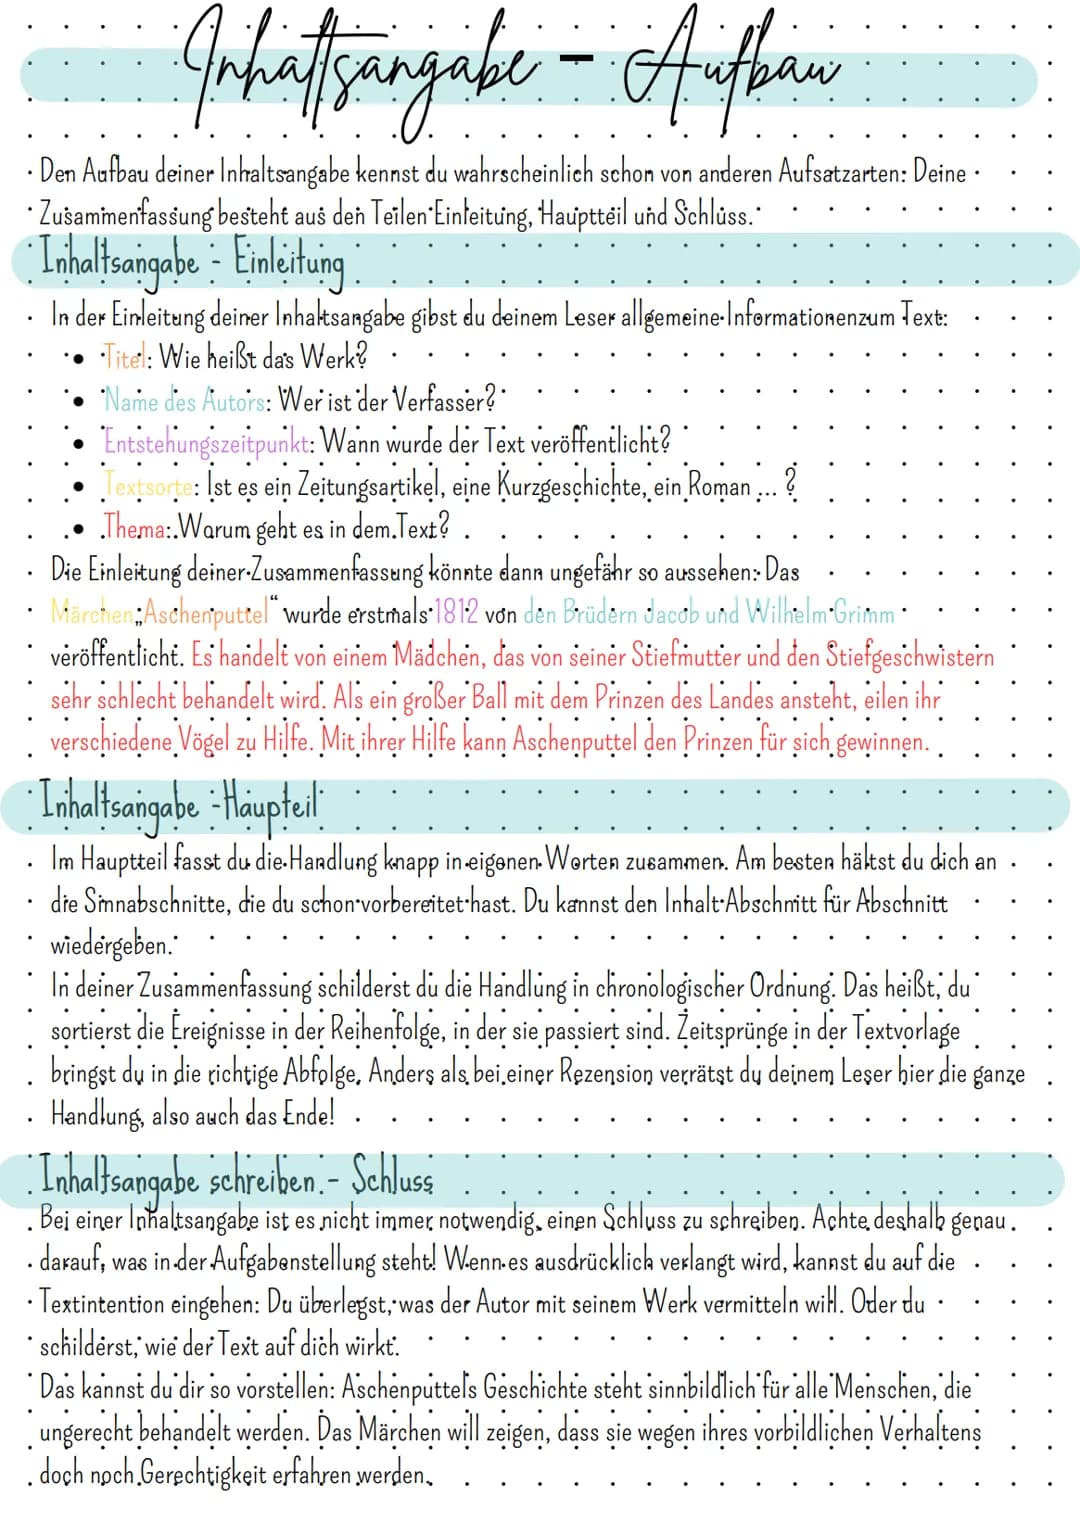 Inhaltsangabe - Aufbau
Den Aufbau deiner Inhaltsangabe kennst du wahrscheinlich schon von anderen Aufsatzarten: Deine
Zusammenfassung besteht aus den Teilen Einleitung, Hauptteil und Schluss.
Inhaltsangabe - Einleitung
In der Einleitung deiner Inhaltsangabe gibst du deinem Leser allgemeine Informationenzum Text:
• Titel: Wie heißt das Werk?
• Name des Autors: Wer ist der Verfasser?
• Entstehungszeitpunkt: Wann wurde der Text veröffentlicht?
• Textsorte: Ist es ein Zeitungsartikel, eine Kurzgeschichte, ein Roman ... ?
• Thema: Worum geht es in dem Text?
Die Einleitung deiner Zusammenfassung könnte dann ungefähr so aussehen: Das
Märchen „Aschenputtel“ wurde erstmals 1812 von den Brüdern Jacob und Wilhelm Grimm
veröffentlicht. Es handelt von einem Mädchen, das von seiner Stiefmutter und den Stiefgeschwistern
sehr schlecht behandelt wird. Als ein großer Ball mit dem Prinzen des Landes ansteht, eilen ihr
verschiedene Vögel zu Hilfe. Mit ihrer Hilfe kann Aschenputtel den Prinzen für sich gewinnen.
Inhaltsangabe -Haupteil
Im Hauptteil fasst du die Handlung knapp in eigenen Worten zusammen. Am besten hältst du dich an
die Sinnabschnitte, die du schon vorbereitet hast. Du kannst den Inhalt Abschnitt für Abschnitt
wiedergeben.
In deiner Zusammenfassung schilderst du die Handlung in chronologischer Ordnung. Das heißt, du
sortierst die Ereignisse in der Reihenfolge, in der sie passiert sind. Zeitsprünge in der Textvorlage
bringst du in die richtige Abfolge. Anders als bei einer Rezension verrätst du deinem Leser hier die ganze
Handlung, also auch das Ende!
Inhaltsangabe schreiben - Schluss
Bei einer Inhaltsangabe ist es nicht immer notwendig, einen Schluss zu schreiben. Achte deshalb genau
darauf, was in der Aufgabenstellung steht! Wenn es ausdrücklich verlangt wird, kannst du auf die
Textintention eingehen: Du überlegst, was der Autor mit seinem Werk vermitteln will. Oder du
schilderst, wie der Text auf dich wirkt.
Das kannst du dir so vorstellen: Aschenputtels Geschichte steht sinnbildlich für alle Menschen, die
ungerecht behandelt werden. Das Märchen will zeigen, dass sie wegen ihres vorbildlichen Verhaltens
doch noch Gerechtigkeit erfahren werden.